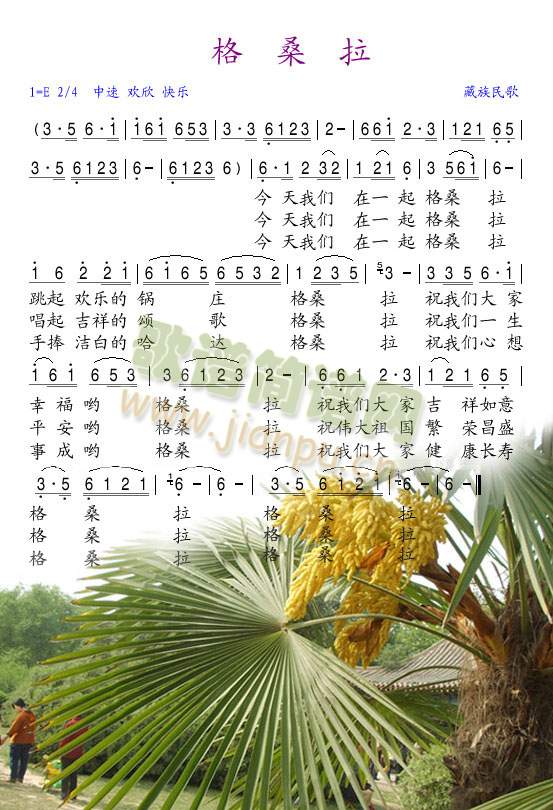 格 桑 拉
1=E 2/4 中速 欢欣 快乐 藏族民歌
(3·5 6·1 | 161 653 | 3·3 6123 | 2- | 661 2·3 | 121 65 |
3·5 6123 | 6- | 6123 6) | 6·1 2 32 | 1 21 6 | 3 561 | 6- |
今 天我们 在一 起 格桑 拉
今 天我们 在一 起 格桑 拉
今 天我们 在一 起 格桑 拉
1 6 2 21 | 6165 | 6532 | 1 235 | 53- | 335 6·1 |
跳起 欢乐的 锅 庄 格桑 拉 祝我们大 家
唱起 吉祥的 颂 歌 格桑 拉 祝我们一 生
手捧 洁白的 哈 达 格桑 拉 祝我们心 想
161 653 | 3 6123 | 2- | 661 2·3 | 121 655 |
幸 福 哟 格桑 拉 祝我们大 家 吉 祥如意
平 安 哟 格桑 拉 祝伟大祖 国 繁 荣昌盛
事 成 哟 格桑 拉 祝我们大 家 健 康长寿
3·5 6121 | 16- | 6- | 3·5 6121 | 16- | 6-
格 桑 拉 格 桑 拉
格 桑 拉 格 桑 拉
格 桑 拉 格 桑 拉
歌谱简谱网
www.jianpu.cn